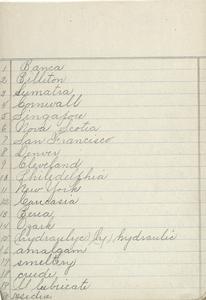 1 Banca
2 Billiton
3 Sumatra
4 Cornwall
5 Singapore
6 Nova Scotia
7 San Francisco
8 Denver
9 Cleveland
10 Philidelphia
11 New York
12 Caucasia
13 Beria
14 Ozark
15 hydraulyc(ly) hydraulic
16 amalgam
17 smeltery
18 crude
19 lubicate